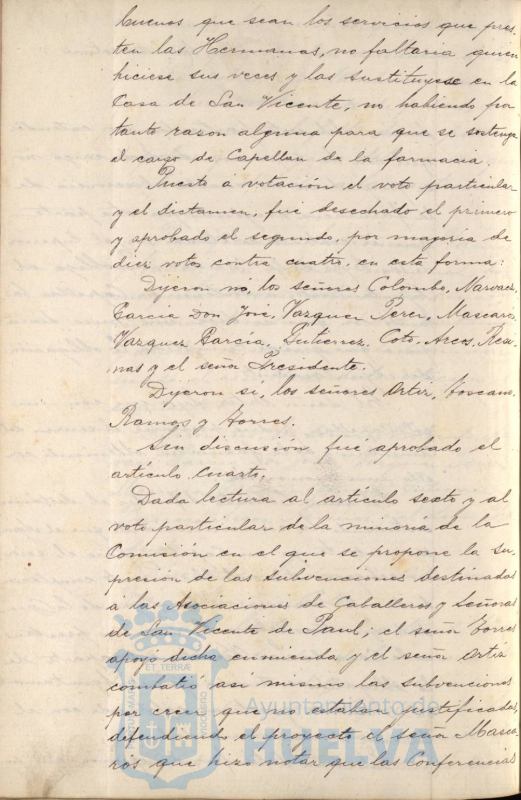 buenos que sean los servicios que pres-
ten las Hermanas, no faltaria quien
hiciese sus veces y las sustituyese en la
Casa de San Vicente, no habiendo por
tanto razon alguna para que se sostenga
el cargo de Capellan de la farmacia.
Puesto á votación el voto particular
y el dictamen, fué desechado el primero
y aprobado el segundo, por mayoria de
diez votos contra cuatro, en esta forma:
Dijeron nó, los señores Colombo, Narvaez,
Garcia Don José, Vazquez Perez, Mascaros,
Vazquez Garcia, Gutierrez, Coto, Arcos, Resi-
nas y el señor Presidente.
Dijeron sí, los señores Ortiz, Toscano,
Ramos y Torres.
Sin discusión fué aprobado el
artículo cuarto.
Dada lectura al artículo sexto y al
voto particular de la minoria de la
Comisión en el que se propone la su-
presión de las subvenciones destinadas
á las Asociaciones de Caballeros y Señoras
de San Vicente de Paul; el señor Torres
apoyó dicha enmienda y el señor Ortiz
combatió así mismo las subvenciones
por creer que no estaban justificadas,
defendiendo el proyecto el señor Masca-
rós que hizo notar que las Conferencias
PORTUS MARIS ET TERRÆ CUSTODIO
Ayuntamiento de
HUELVA